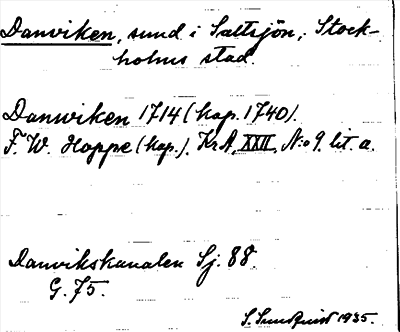 Danviken, sund i Saltsjön, Stock-
holms stad.
Danwiken 1714 (kop. 1740).
F. W. Hoppe (kop.). KrA, XXII, N:o 9. lit. a.
Danvikskanalen Sj. 88.
G. 75.
S. Sundquist 1935.